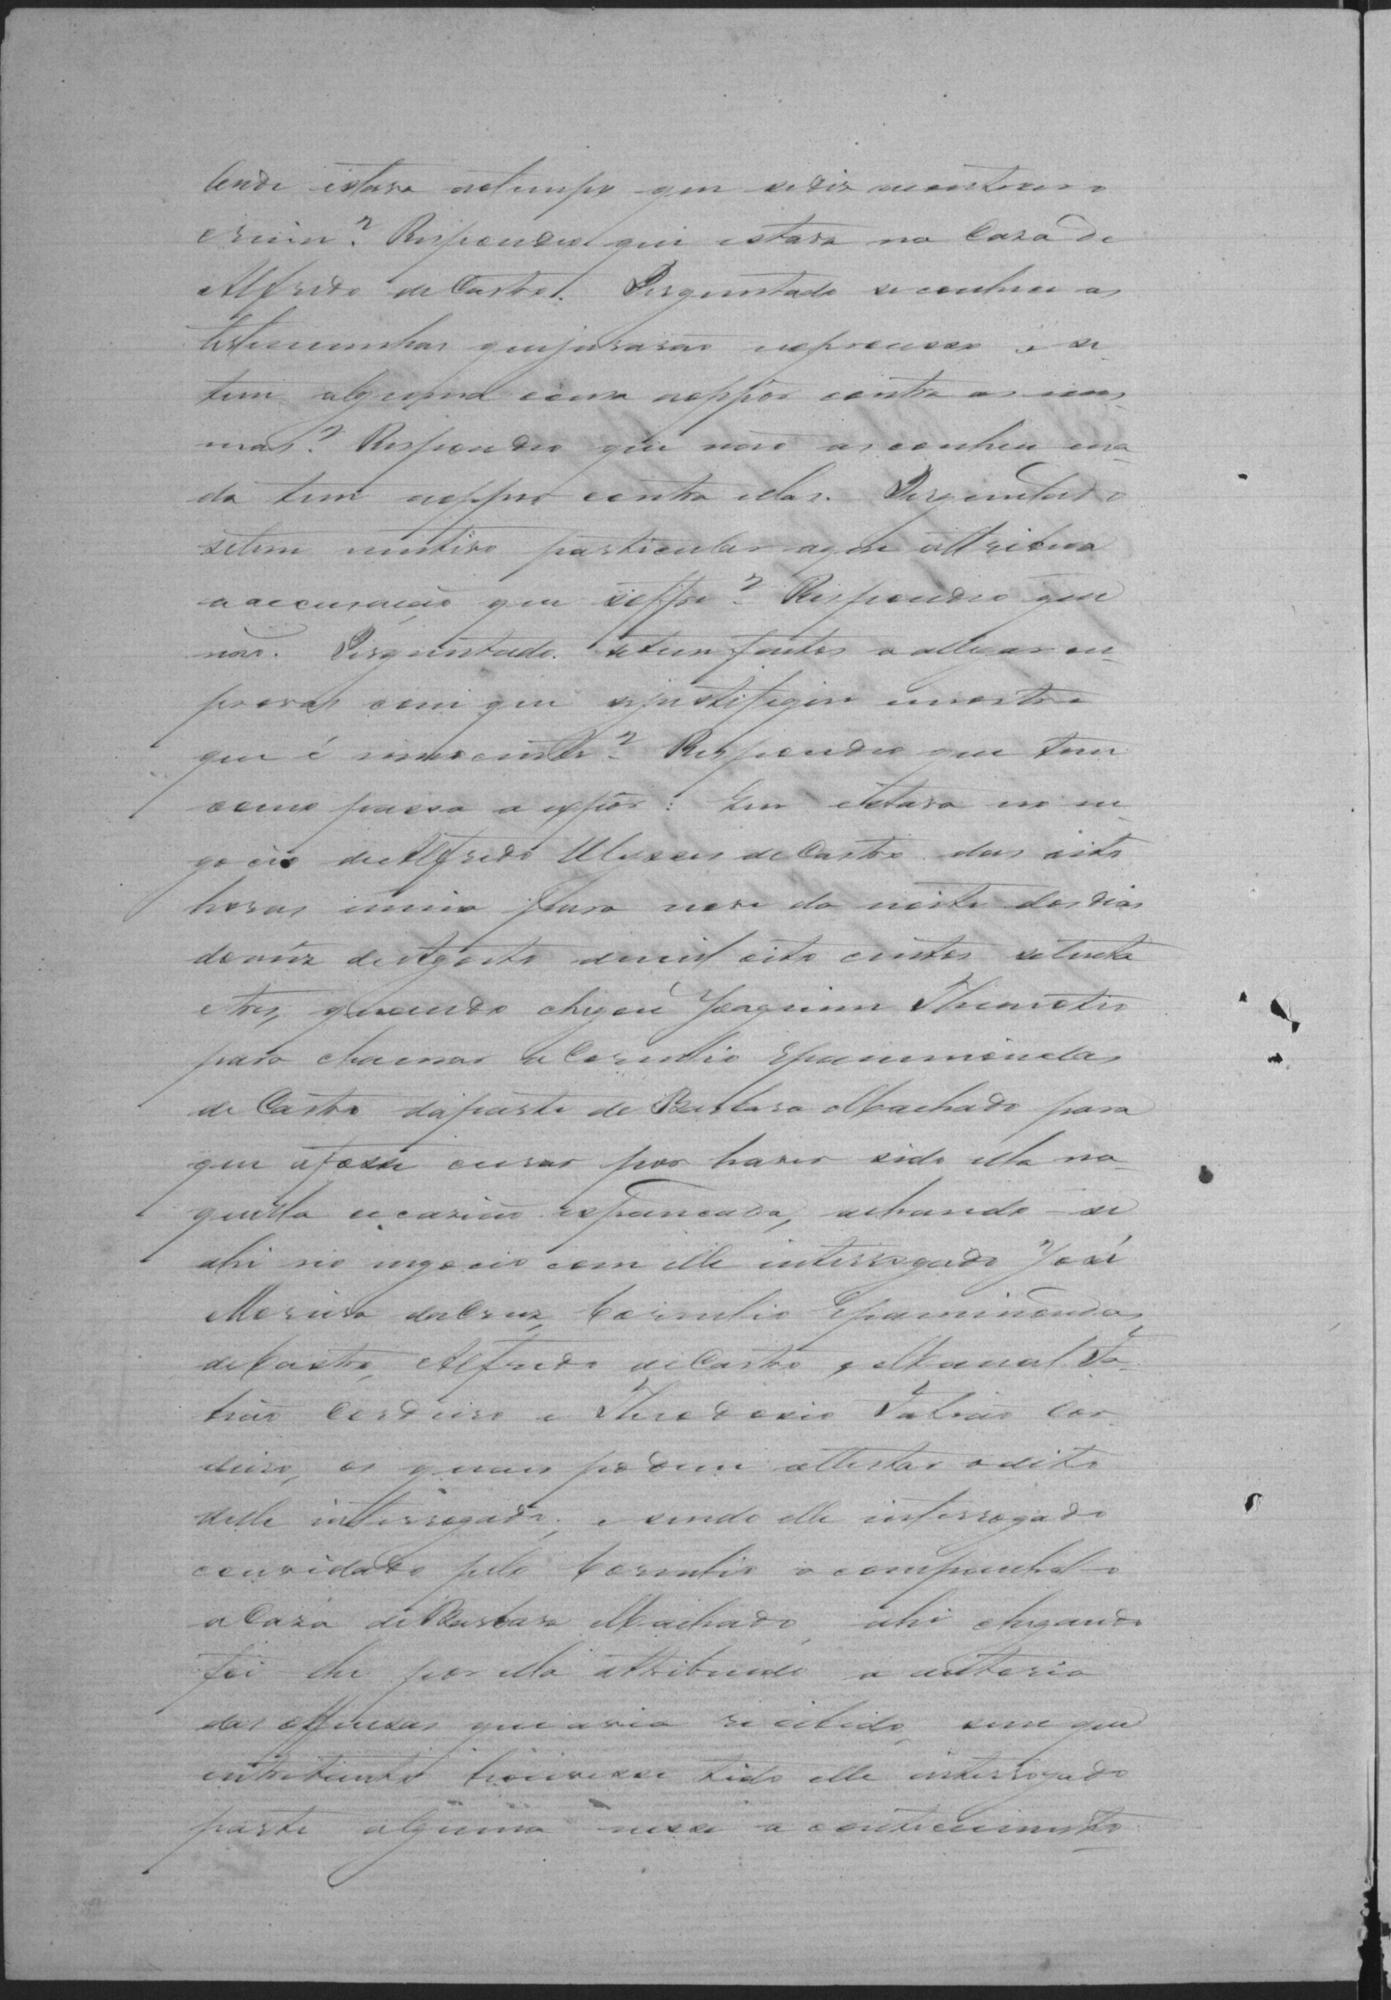 Onde estava ao tempo que se diz aconteceo o
crime? Respondeo que estava na Casa de
Alfredo de Castro. Perguntado se conhece as
testemunhas que juraraõ no processo e se
tem alguma cousa a oppôr contra as mes-
mas? Respondeo que não as conhece e na-
da tem a oppor contra ellas. Perguntado
se tem motivo particular a que attribua
a accusação que soffre? Respondeo que
não. Perguntado se tem factos a allegar ou
provas com que se justifique e mostre
que é innocente? Respondeo que tem
como passa a expôr: Que estava no ne-
gocio de Alfredo Ulysses de Castro das oito
horas e meia para nove da noite do dia
de Agosto de mil oito centos setenta
e tres, quando chegou Joaquim Thimotio
para chamar a Cornelio Epaminondas
de Castro da parte de Barbara Machado para
que a fosse curar por haver sido ella na-
quella occasião espancada, achando-se
ahi no negocio com elle interrogado José
Moreira da Cruz, Cornelio Epaminondas
de Castro, Alfredo de Castro, e Manoel Fa-
lcão Cordeiro e Theodosio Falcão Cor-
deiro, os quaes podem attestar o dito
delle interrogado; e sendo elle interrogado
convidado pelo Cornelio a acompanhal-o
a Casa de Barbara Machado, ahi chegando
foi lhe por ella attribuido a autoria
das offensas que avia recebido, sem que
entretanto houvesse tido elle interrogado
parte alguma nesse acontecimento